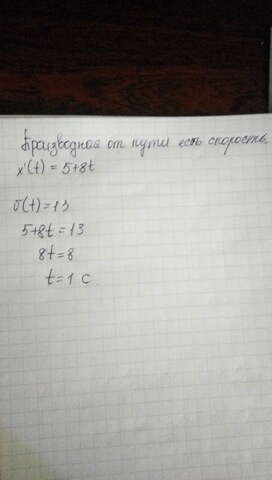 Производная от пути есть скорость.
x'(t) = 5+8t
υ(t)=13
5+8t=13
8t=8
t=1 с